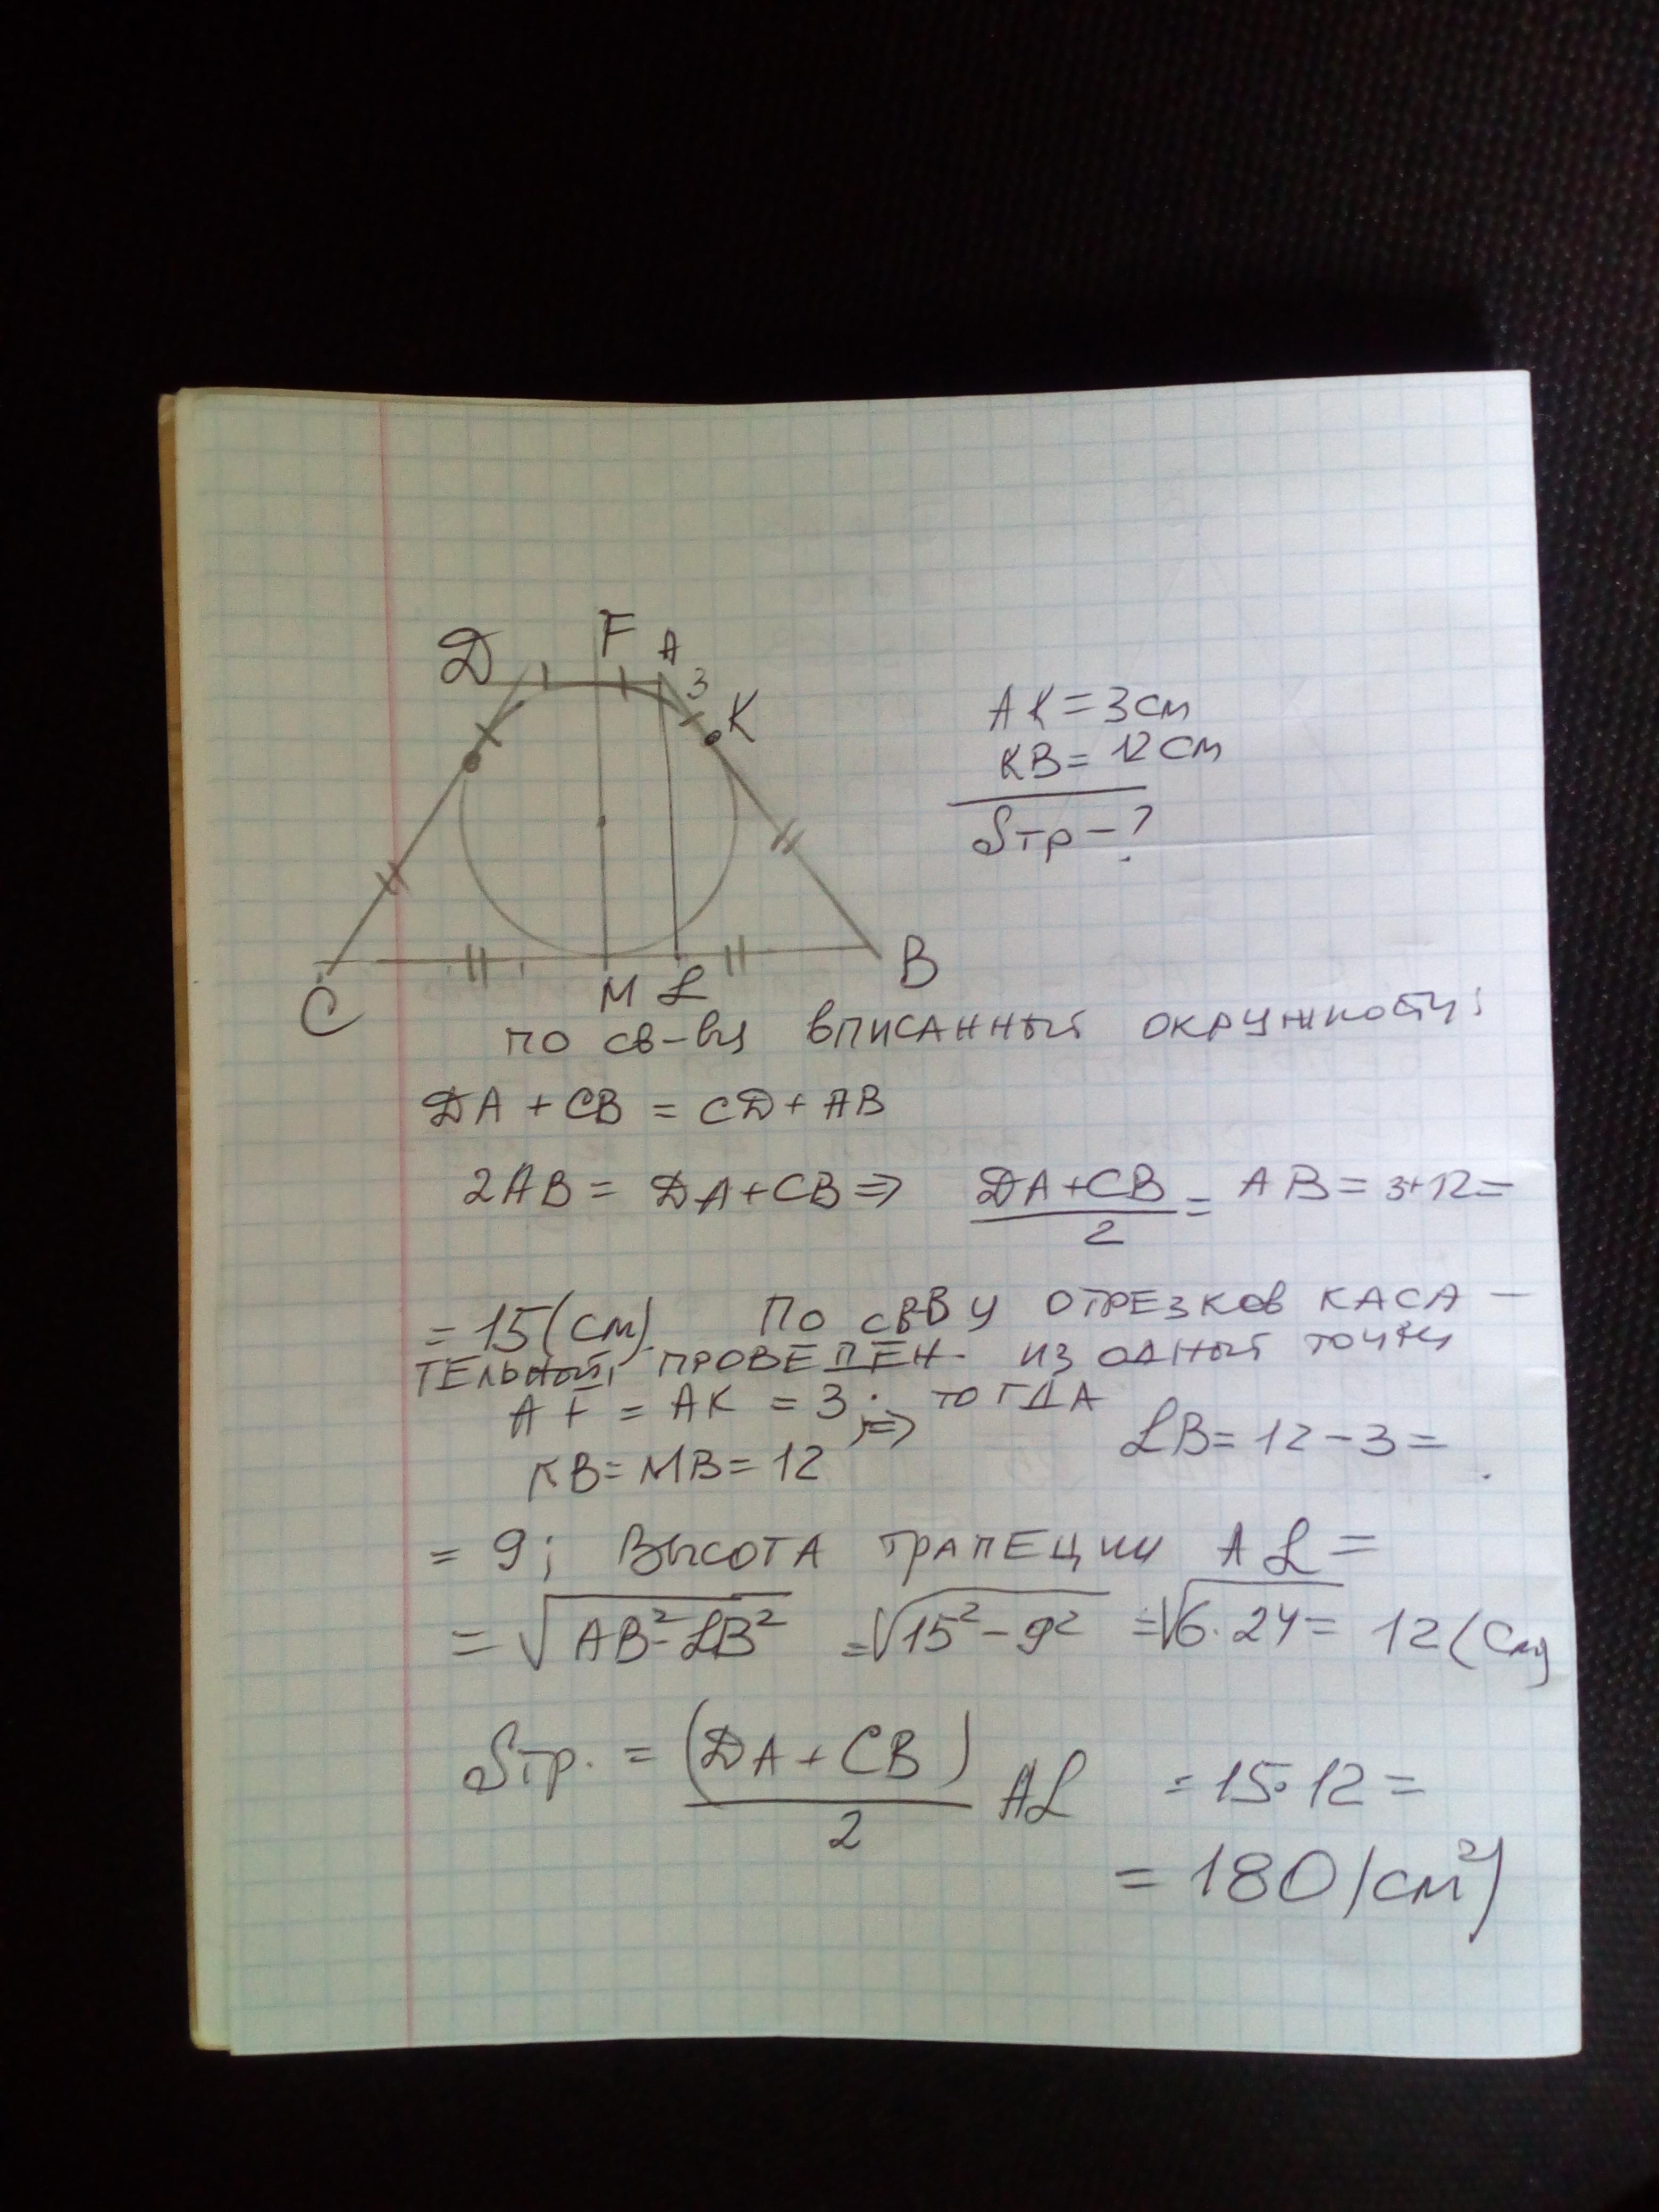 D F A
3
K
C M L B
AK = 3см
KB = 12см
Sтр - ?
по св-ву вписанный окружности:
DA + CB = CD + AB
2AB = DA + CB ⇒ (DA + CB)/2 = AB = 3+12 =
= 15(см). По св-ву отрезков каса-
тельный, проведен. из одный точки
AF = AK = 3; тогда
KB = MB = 12 ⇒ LB = 12 - 3 =
= 9; Высота трапеции AL =
= √(AB² - LB²) = √(15² - 9²) = √(6·24) = 12(см)
Sтр. = (DA + CB)/2 AL = 15·12 =
= 180(см²)